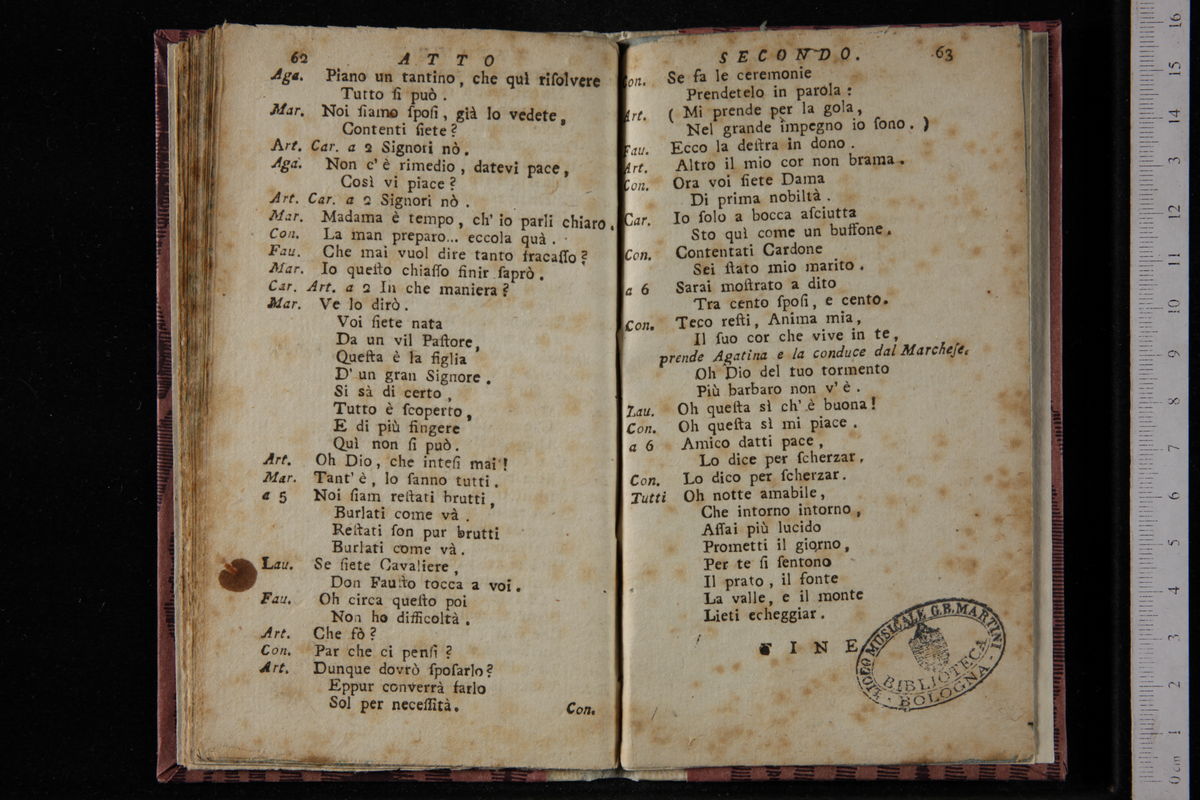 62 ATTO
Aga. Piano un tantino, che quì riſolvere
Tutto ſi può.
Mar. Noi ſiamo ſpoſi, già lo vedete,
Contenti ſiete?
Art. Car. a 2 Signori nò.
Aga. Non c'è rimedio, datevi pace,
Così vi piace?
Art. Car. a 2 Signori nò.
Mar. Madama è tempo, ch' io parli chiaro.
Con. La man preparo... eccola quà.
Fau. Che mai vuol dire tanto fracaſſo?
Mar. Io queſto chiaſſo finir ſaprò.
Car. Art. a 2 In che maniera?
Mar. Ve lo dirò.
Voi ſiete nata
Da un vil Paſtore,
Queſta è la figlia
D' un gran Signore.
Si sà di certo,
Tutto è ſcoperto,
E di più fingere
Quì non ſi può.
Art. Oh Dio, che inteſi mai!
Mar. Tant' è, lo ſanno tutti.
a 5 Noi ſiam reſtati brutti,
Burlati come và.
Reſtati ſon pur brutti
Burlati come và.
Lau. Se ſiete Cavaliere,
Don Fauſto tocca a voi.
Fau. Oh circa queſto poi
Non ho difficoltà.
Art. Che fò?
Con. Par che ci penſi?
Art. Dunque dovrò ſpoſarlo?
Eppur converrà farlo
Sol per neceſſità.
Con.
SECONDO. 63
Con. Se fa le ceremonie
Prendetelo in parola:
Art. ( Mi prende per la gola,
Nel grande impegno io ſono. )
Fau. Ecco la deſtra in dono.
Art. Altro il mio cor non brama.
Con. Ora voi ſiete Dama
Di prima nobiltà.
Car. Io ſolo a bocca aſciutta
Sto quì come un buffone.
Con. Contentati Cardone
Sei ſtato mio marito.
a 6 Sarai moſtrato a dito
Tra cento ſpoſi, e cento.
Con. Teco reſti, Anima mia,
Il ſuo cor che vive in te,
prende Agatina e la conduce dal Marcheſe.
Oh Dio del tuo tormento
Più barbaro non v' è.
Lau. Oh queſta sì ch' è buona!
Con. Oh queſta sì mi piace.
a 6 Amico datti pace,
Lo dice per ſcherzar.
Con. Lo dico per ſcherzar.
Tutti Oh notte amabile,
Che intorno intorno,
Aſſai più lucido
Prometti il giorno,
Per te ſi ſentono
Il prato, il fonte
La valle, e il monte
Lieti echeggiar.
FINE
LICEO MUSICALE G.B. MARTINI
BIBLIOTECA
BOLOGNA
0 cm 1 2 3 4 5 6 7 8 9 10 11 12 13 14 15 16